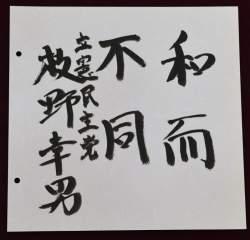 和而
不同
立憲民主党
枝野幸男